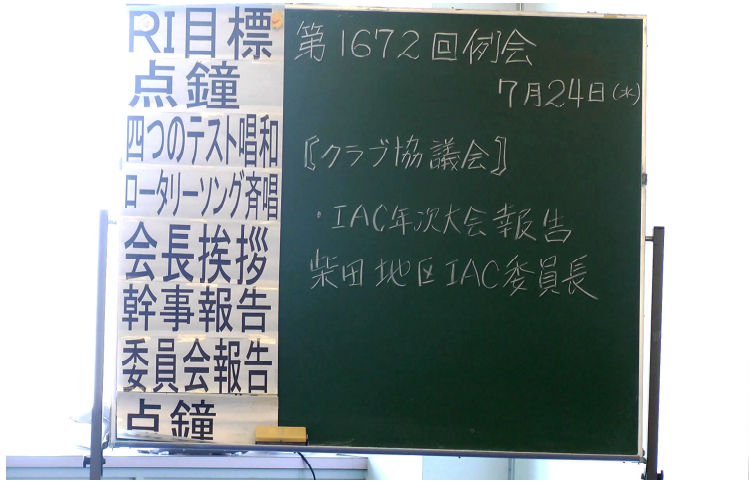 RI目標
点鐘
四つのテスト唱和
ロータリーソング斉唱
会長挨拶
幹事報告
委員会報告
点鐘
第1672回例会
7月24日(水)
〖クラブ協議会〗
・IAC年次大会報告
柴田地区IAC委員長